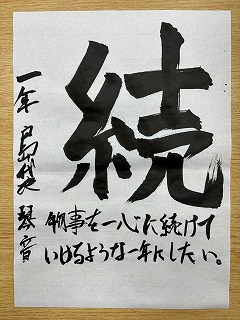 続
一年 島袋 琴音
物事を一心に続けて
いけるような一年にしたい。